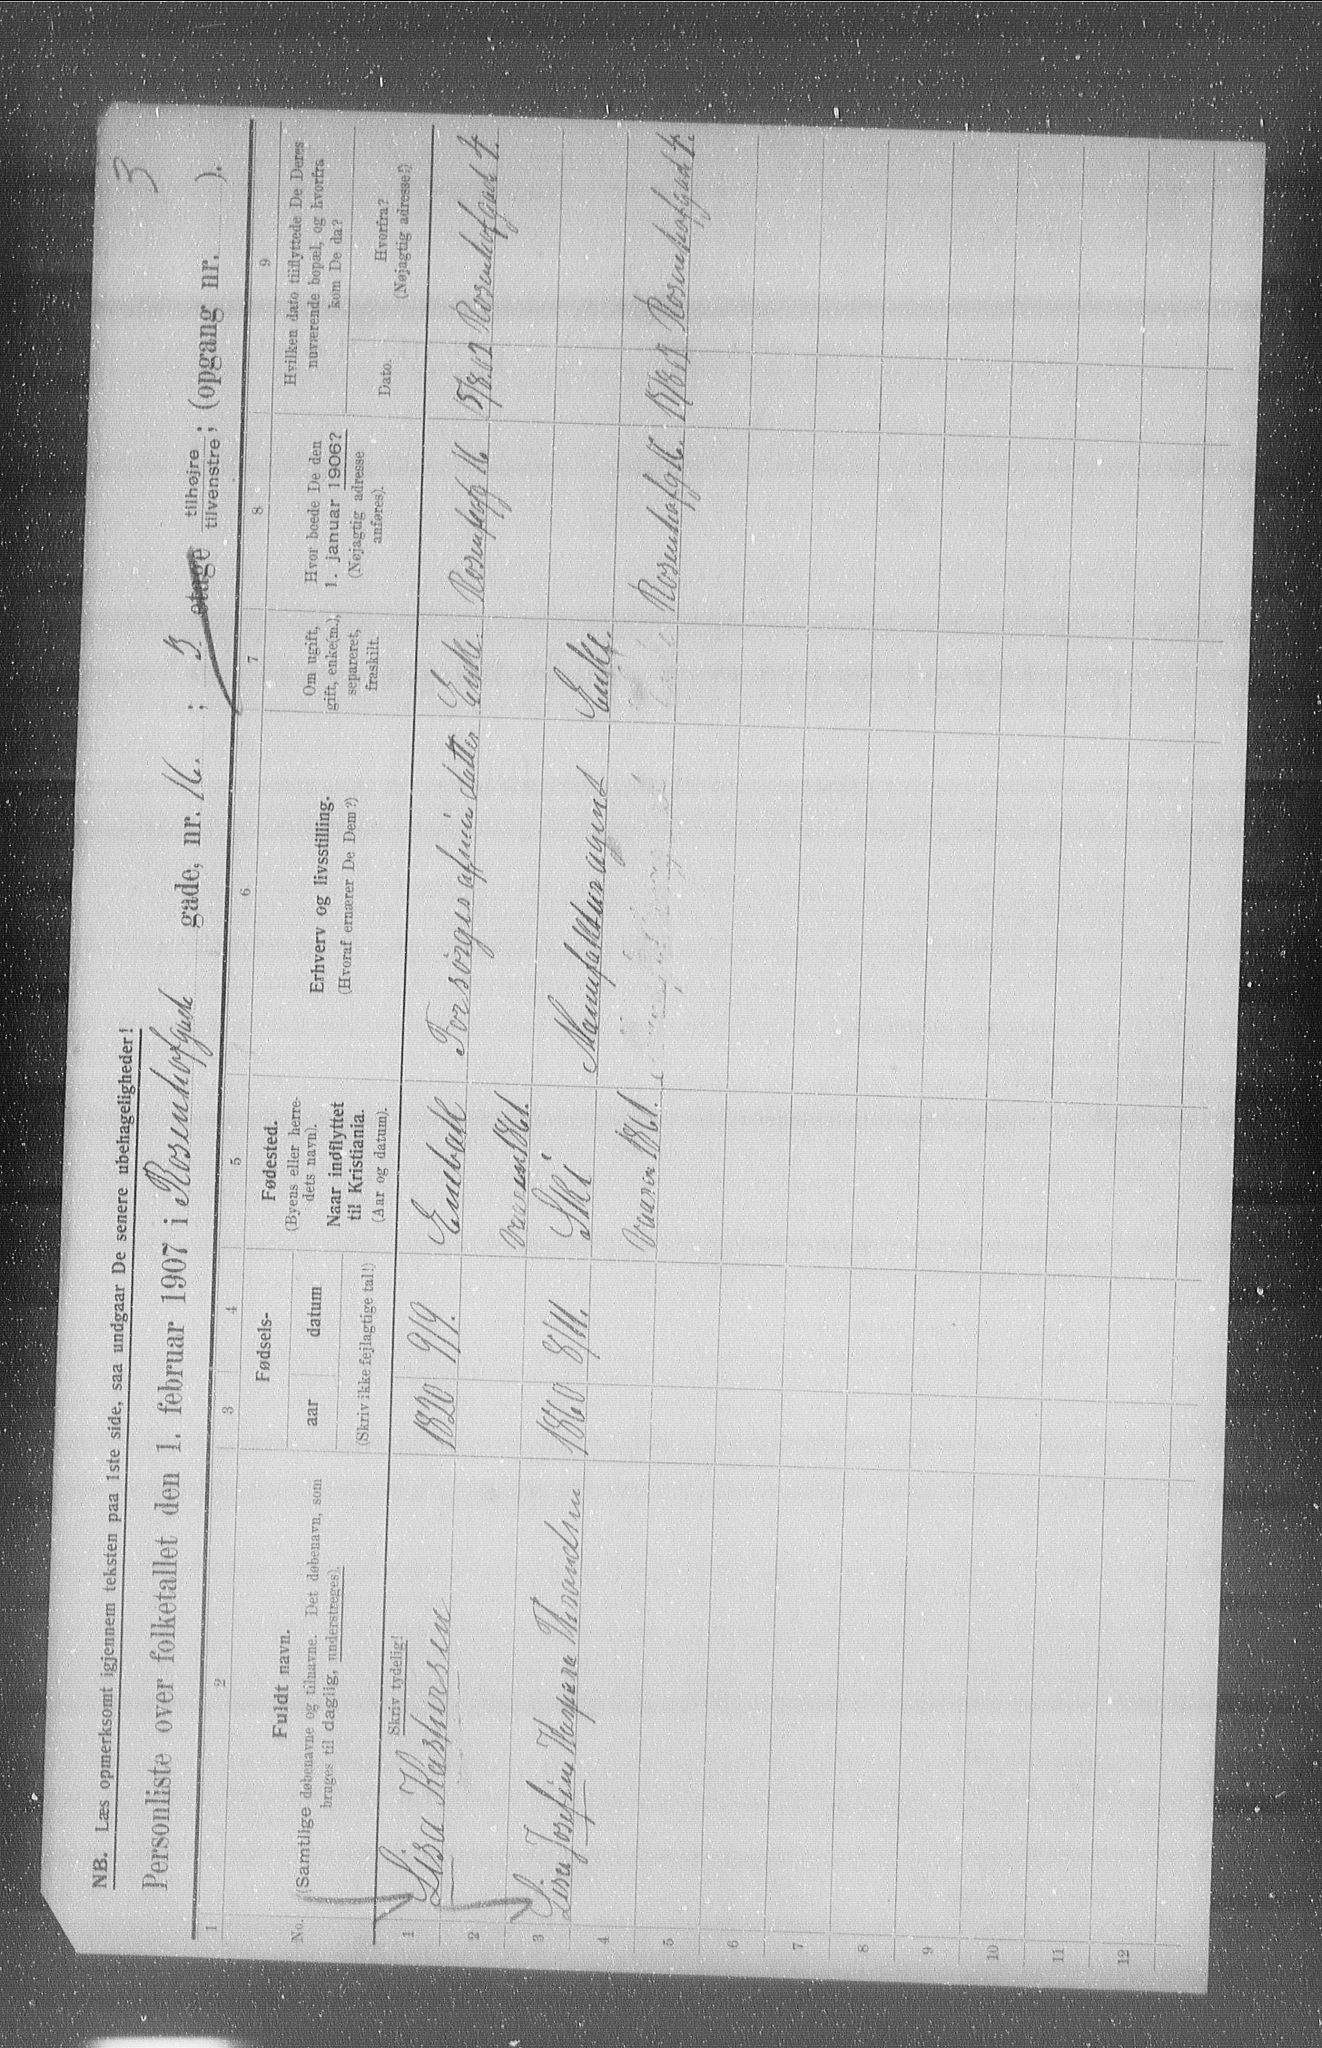 3
NB. Læs opmerksomt igjennem teksten paa 1ste side, saa undgaar De senere ubehageligheder!
Personliste over folketallet den 1. februar 1907 i Rosenhofgade gade, nr. 16. ; 3 etage tilhøjre tilvenstre; (opgang nr. ).
1 2 3 4 5 6 7 8 9
No.
Fuldt navn.
(Samtlige døbenavne og tilnavne. Det døbenavn, som
bruges til daglig, understreges).
Skriv tydelig!
Fødsels-
aar datum
(Skriv ikke fejlagtige tal!)
Fødested.
(Byens eller herre-
dets navn).
Naar indflyttet
til Kristiania.
(Aar og datum).
Erhverv og livsstilling.
(Hvoraf ernærer De Dem?)
Om ugift,
gift, enke(m.),
separeret,
fraskilt.
Hvor boede De den
1. januar 1906?
(Nøjagtig adresse
anføres).
Hvilken dato tilflyttede De Deres
nuværende bopæl, og hvorfra
kom De da?
Dato.
Hvorfra?
(Nøjagtig adresse!)
1 Lisa Kaspersen 1820 9/9. Enebak Forsørges af min datter Enke. Rosenhofg 16 Rosenhofgad 4.
2 1861.
3 Lisa Josefine Kaspara Throndsen 1860 8/11. Ski Manufakturagent Enke.
4 Vaaren 1861. Rosenhofg 16. Rosenhofgad 4.
5
6
7
8
9
10
11
12